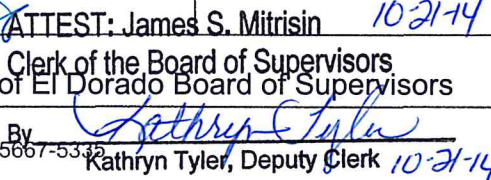 ATTEST: James S. Mitrisin 10-21-14
Clerk of the Board of Supervisors
of El Dorado Board of Supervisors
By Kathryn Tyler
5667-5335
Kathryn Tyler, Deputy Clerk 10-21-14